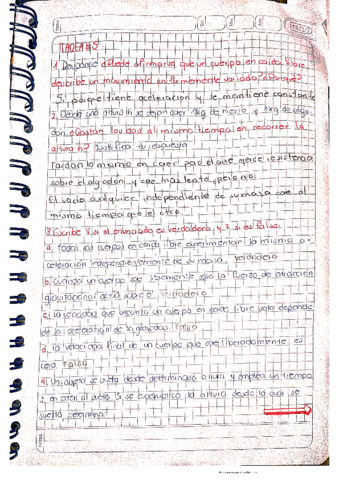 TAREA #5
1. ¿Dónde puede afirmarse que un cuerpo en caída libre
describe un movimiento uniformemente variado? ¿Por qué?
Si, porque tiene aceleración y se mantiene constante
2. Desde una altura h se dejan caer 1kg de hierro y 1kg de algo-
dón. ¿ al mismo tiempo en recorrer la
altura h? Justifica tu respuesta
Tardan lo mismo en caer pero el aire ejerce resistencia
sobre el algodón y cae más lento, pero
El vacío cualquier independiente de su masa cae al
mismo tiempo que el otro.
3. Escribe V si el enunciado es verdadero, y F si es falso.
a. Todos los cuerpos en caída libre experimentan la misma a-
celeración independientemente de su masa. Verdadero
b. Cuando un cuerpo cae libremente solo la fuerza de atracción
gravitacional actúa sobre él. Verdadero
c. La velocidad que adquiere un cuerpo en caída libre solo depende
de la aceleración de la gravedad. Falso
d. La velocidad final de un cuerpo que cae liberadamente es
cero. Falso
4. Un objeto se suelta desde determinada altura y emplea un tiempo
t en caer al suelo. Si se cuadruplica la altura desde la cual se
suelta, determina: